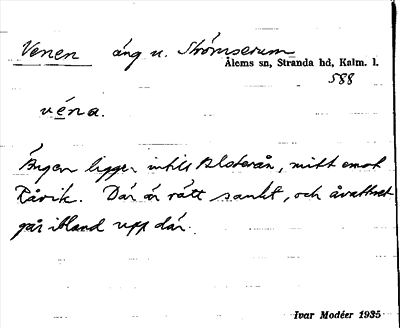 Venen äng u. Strömserum
Ålems sn, Stranda hd, Kalm. l.
588
véna.
Ängen ligger intill Alsterån, mitt emot
Råvik. Där är rätt sankt, och åvattnet
går ibland upp där.
Ivar Modéer 1935